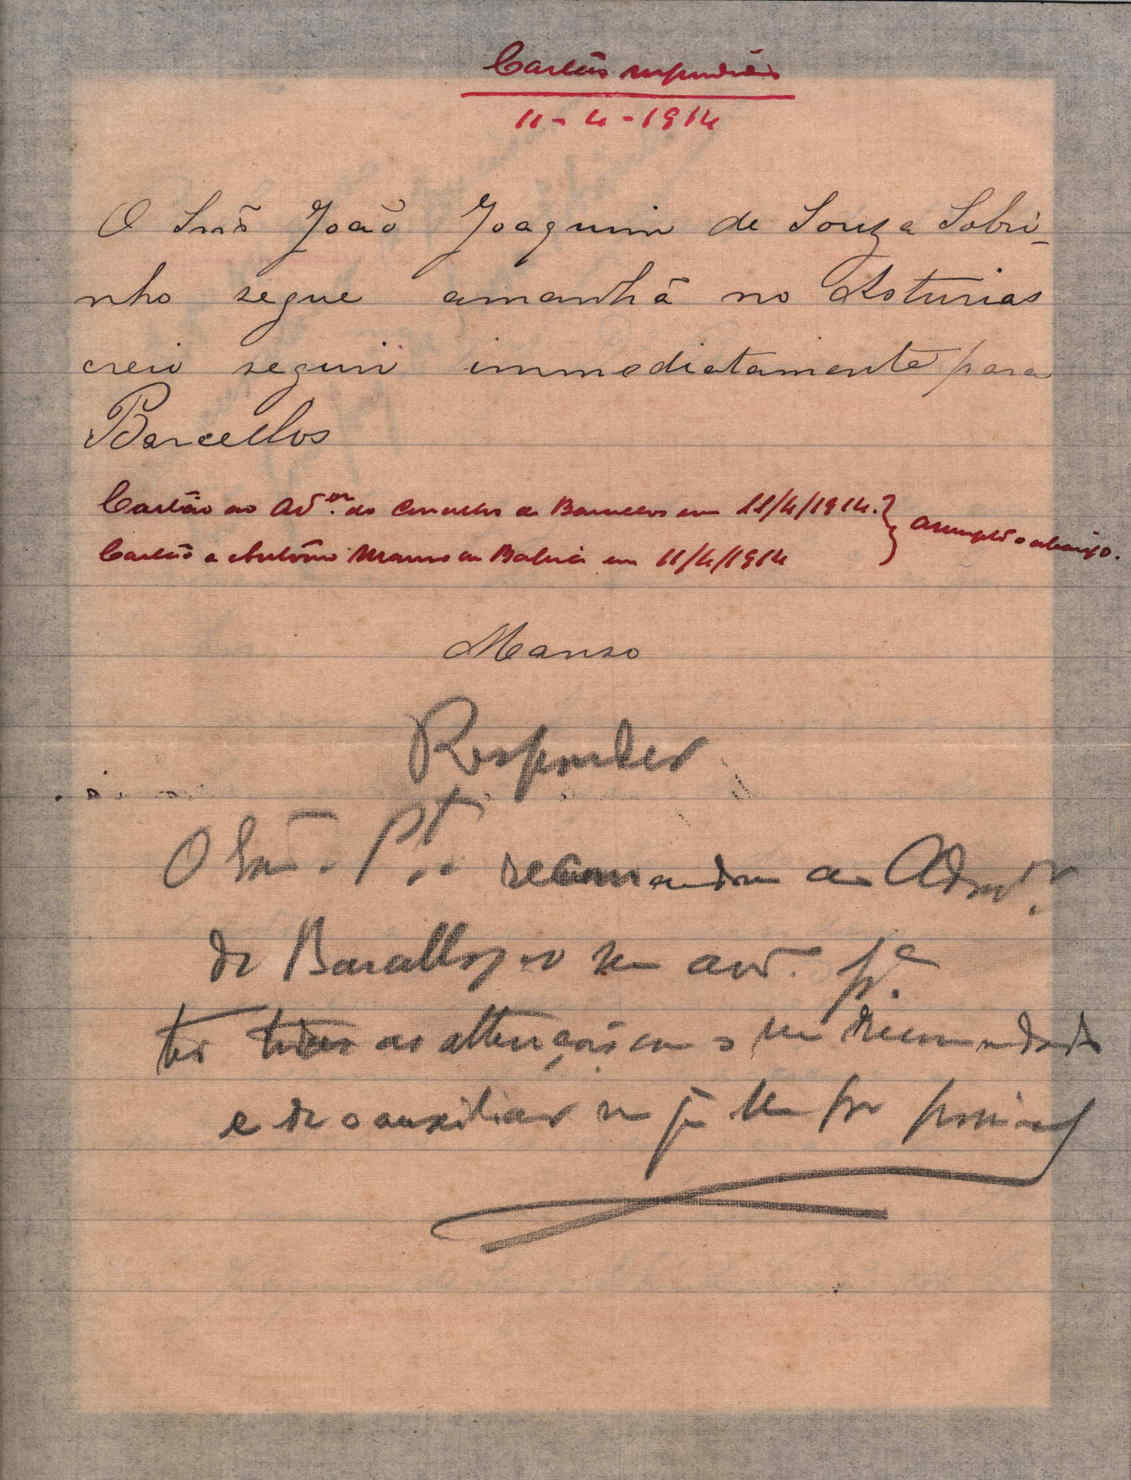 Cartões
11-4-1914
O Snr João Joaquim de Souza Sobri-
nho segue amanhã no Asturias
creio seguir immediatamente para
Barcellos
Cartão ao Ad.or do Concelho de Barcellos em 11/4/1914.
Cartão a Antonio Manso da Bahia em 11/4/1914
assumpto abaixo.
Manso
Responder
O Snr. P.te recommendou ao Admor.
de Barcellos
ter todas as attenções com o seu recommendado
e de o auxiliar no q̃ lhe for possivel